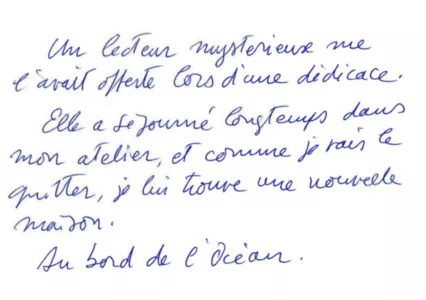 Un lecteur mystérieux me
l'avait offerte lors d'une dédicace.
Elle a séjourné longtemps dans
mon atelier, et comme je vais le
quitter, je lui trouve une nouvelle
maison.
Au bord de l'Océan.